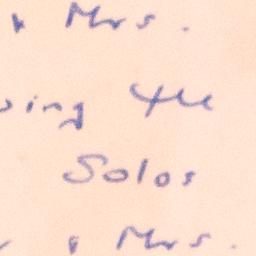 & Mrs.
sing the
Solos
& Mrs.